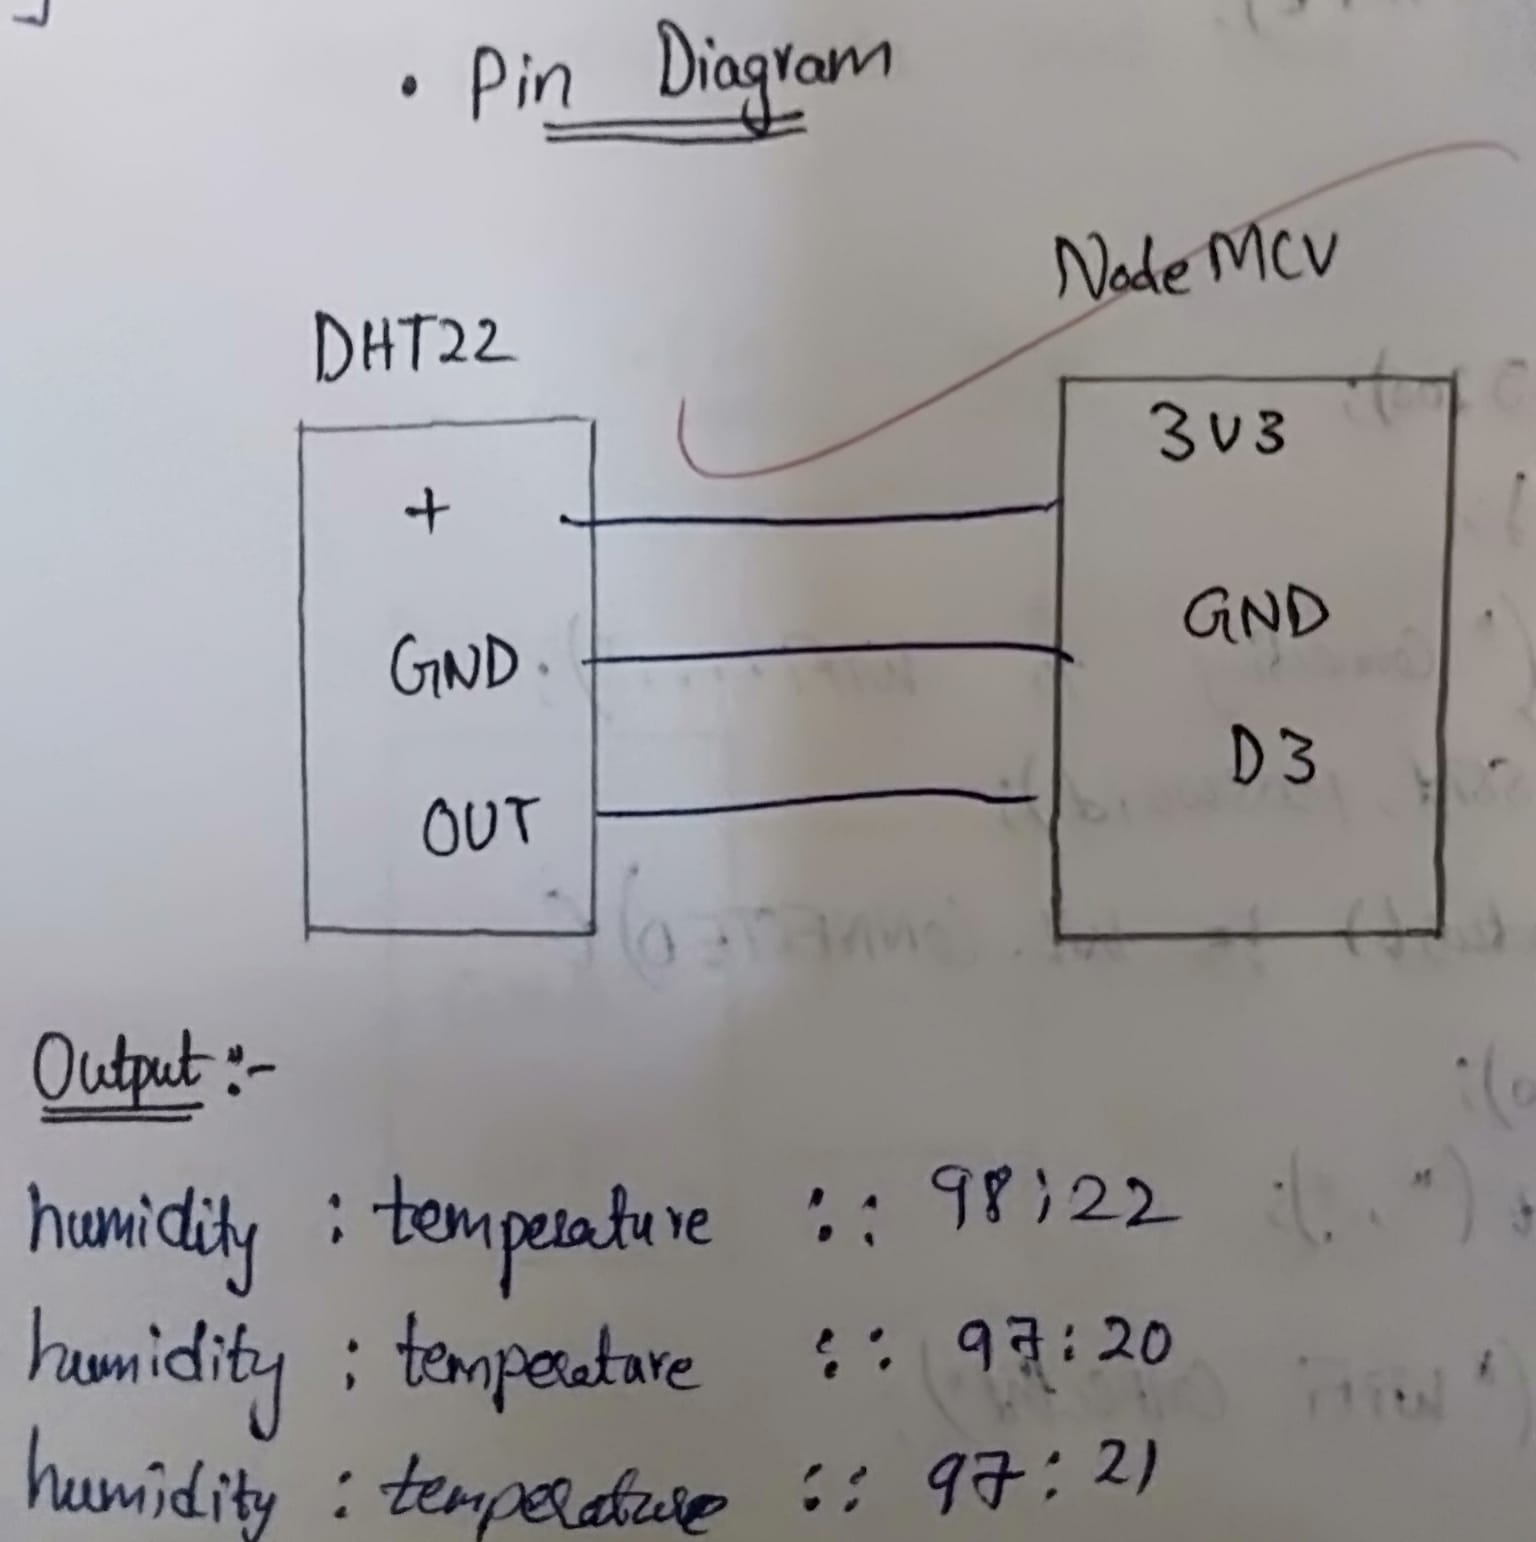 • Pin Diagram
NodeMCV
DHT22
3V3
+
GND
GND
D3
OUT
Output :-
humidity : temperature :: 98;22
humidity ; temperature :: 97:20
humidity : temperature :: 97:21